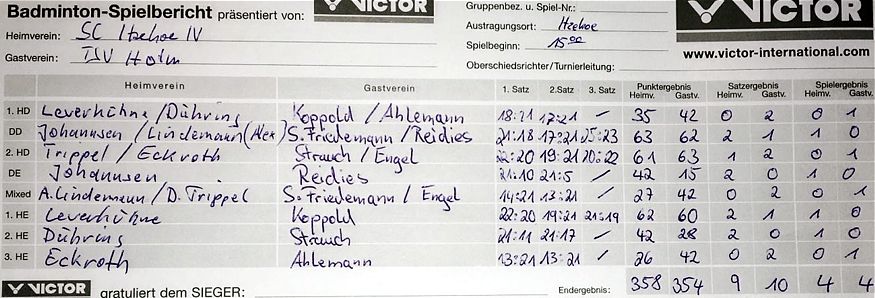 Badminton-Spielbericht präsentiert von: VICTOR Gruppenbez. u. Spiel-Nr.: VICTOR
Heimverein: SC Itzehoe IV Austragungsort: Itzehoe
Gastverein: TSV Holm Spielbeginn: 15.00 www.victor-international.com
Oberschiedsrichter/Turnierleitung:
Heimverein Gastverein 1. Satz 2. Satz 3. Satz Punktergebnis Satzergebnis Spielergebnis
Heimv. Gastv. Heimv. Gastv. Heimv. Gastv.
1. HD Leverkühne/Dühring Koppold/Ahlemann 18:21 17:21 / 35 42 0 2 0 1
DD Johannsen/Lindemann(Alex) S.Friedemann/Reidies 21:18 17:21 25:23 63 62 2 1 1 0
2. HD Trippel/Eckroth Strauch/Engel 22:20 19:21 20:22 61 63 1 2 0 1
DE Johannsen Reidies 21:10 21:5 / 42 15 2 0 1 0
Mixed A.Lindemann/D.Trippel S.Friedemann/Engel 14:21 13:21 / 27 42 0 2 0 1
1. HE Leverkühne Koppold 22:20 19:21 21:19 62 60 2 1 1 0
2. HE Dühring Strauch 21:11 21:17 / 42 28 2 0 1 0
3. HE Eckroth Ahlemann 13:21 13:21 / 26 42 0 2 0 1
VICTOR gratuliert dem SIEGER: Endergebnis: 358 354 9 10 4 4